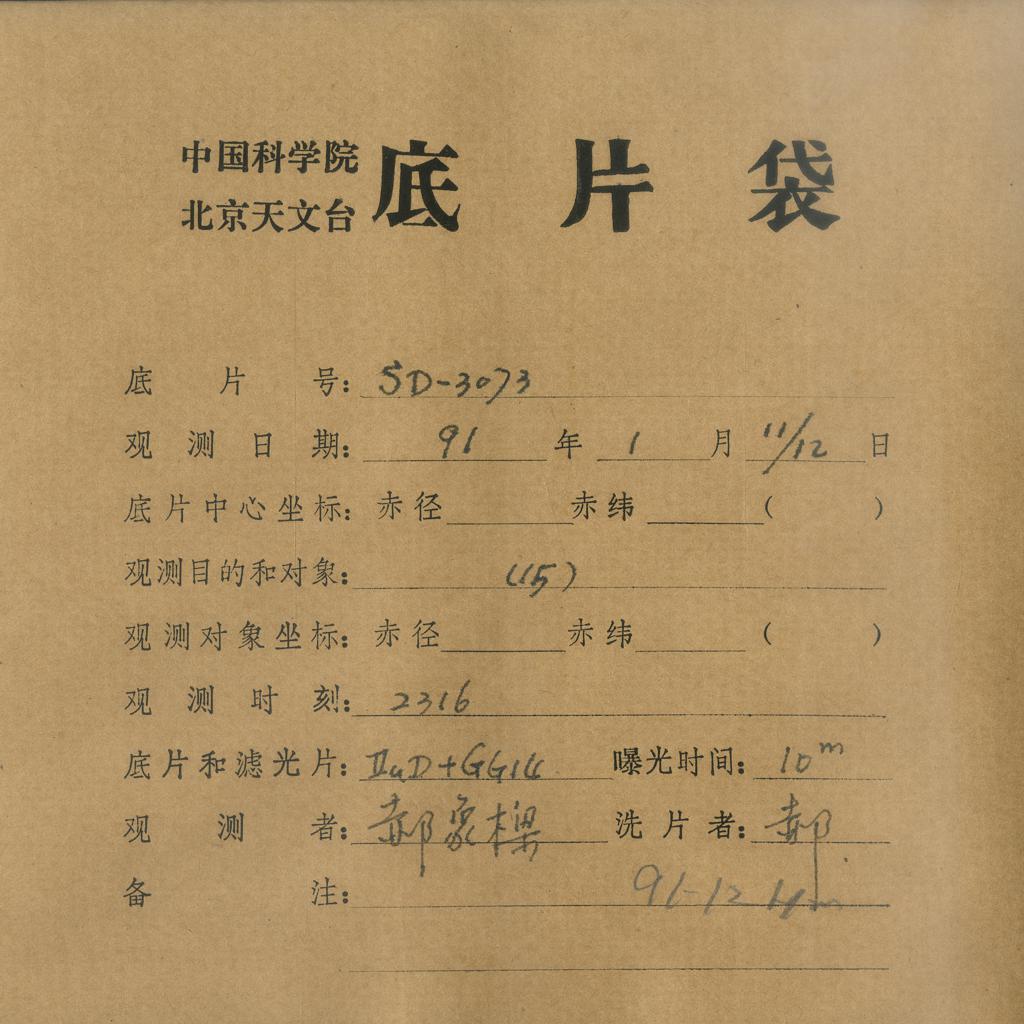 中国科学院
北京天文台 底片袋
底片号：SD-3073
观测日期：91年1月11/12日
底片中心坐标：赤径 赤纬 （ ）
观测目的和对象：(15)
观测对象坐标：赤径 赤纬 （ ）
观测时刻：2316
底片和滤光片：IIaD+GG14 曝光时间：10m
观测者：郝象樑 洗片者：郝
备注：91-12